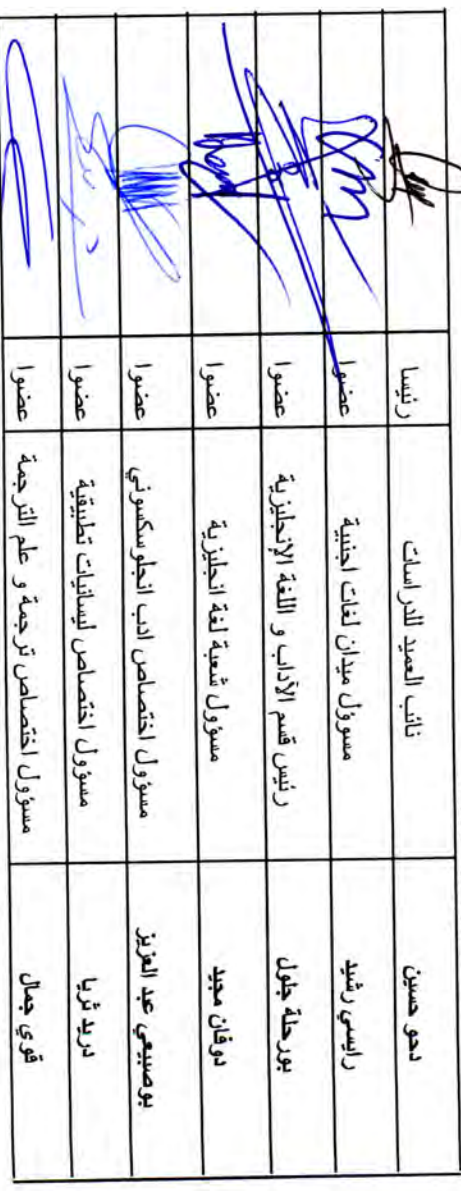 دحو حسين نائب العميد للدراسات رئيسا
رايسي رشيد مسوؤل ميدان لغات اجنبية عضوا
بورحلة جلول رئيس قسم الآداب و اللغة الإنجليزية عضوا
دوفان مجيد مسوؤل شعبة لغة انجليزية عضوا
بوصبيعي عبد العزيز مسوؤل اختصاص ادب انجلوسكسوني عضوا
دريد ثريا مسوؤل اختصاص ليسانيات تطبيقية عضوا
قوي جمال مسوؤل اختصاص ترجمة و علم الترجمة عضوا